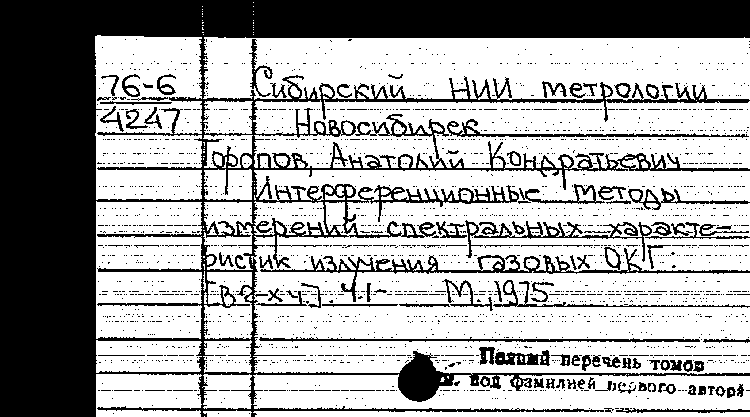 76-6 Сибирский НИИ метрологии
4247 Новосибирск
Торопов, Анатолий Кондратьевич
Интерференционные методы
измерений спектральных характе-
ристик излучения газовых ОКГ.
[В 2-х ч.]. Ч.1- М., 1975.
Полный перечень томов
см. под фамилией первого автора